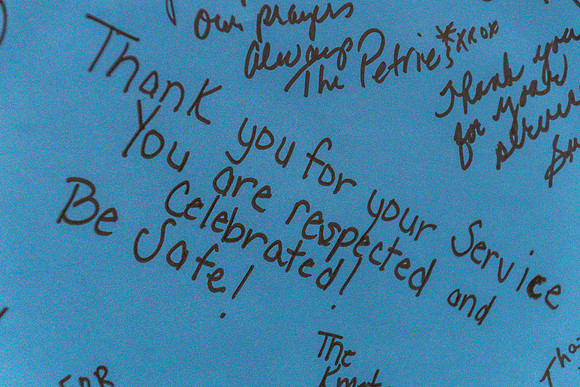 our prayers
always
The Petrie's xxox
Thank you
for your
Thank you for your Service
You are respected and
Celebrated!
Be Safe!
The
FOR